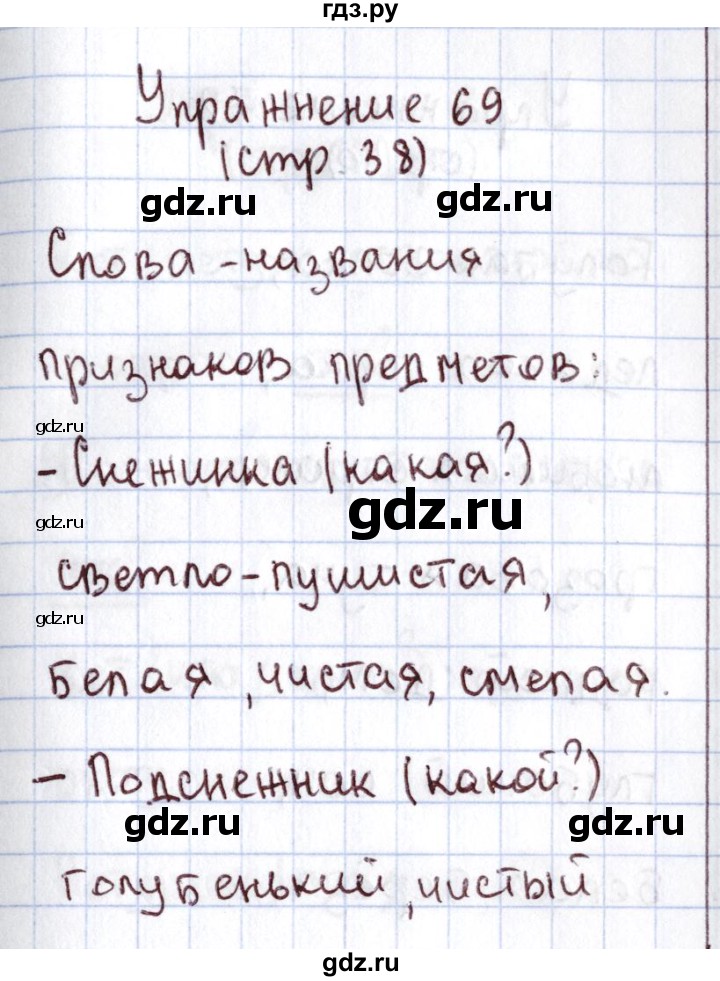 гдз.ру
Упражнение 69
(стр 38)
gdz.ru gdz.ru
Слова - названия
признаков предметов:
gdz.ru
- Снежинка (какая?)
gdz.ru
gdz.ru
светло - пушистая,
gdz.ru
белая, чистая, смелая.
- Подснежник (какой?)
gdz.ru gdz.ru
голубенький, чистый
gdz.ru